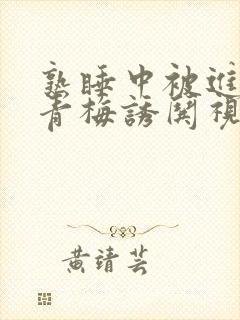 熟睡中被進
青梅誘関視
黄靖芸